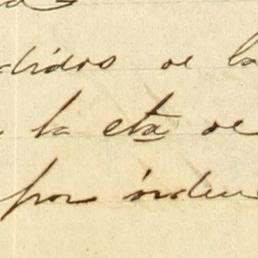 didos de la
la cta de
por órden